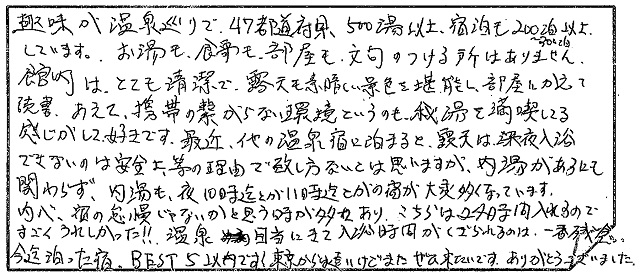 趣味が温泉巡りで、47都道府県、500湯以上、宿泊も200泊以上
〜300泊
しています。お湯も、食事も、部屋も、文句のつける所はありません。
館内は、とても清潔で、露天も薄暗い景色を堪能し、部屋に戻って
読書。あえて、携帯の繋がらない環境というのも、秘湯を満喫してる
感じがして好きです。最近、他の温泉宿に泊まると、露天は、深夜入浴
できないのは安全上等の理由で致し方ないとは思いますが、内湯があるにも
関わらず、内湯も、夜10時迄とか11時迄とかの宿が大変多くなっています。
内心、宿の怠慢じゃないかと思う時が多々あり、こちらは24時間入れるので
すごくうれしかった!!温泉目当にきて入浴時間がくぎられるのは、一番残念。
今迄泊った宿、BEST5以内です!東京から遠いけどまたぜひ来たいです。ありがとうございました。